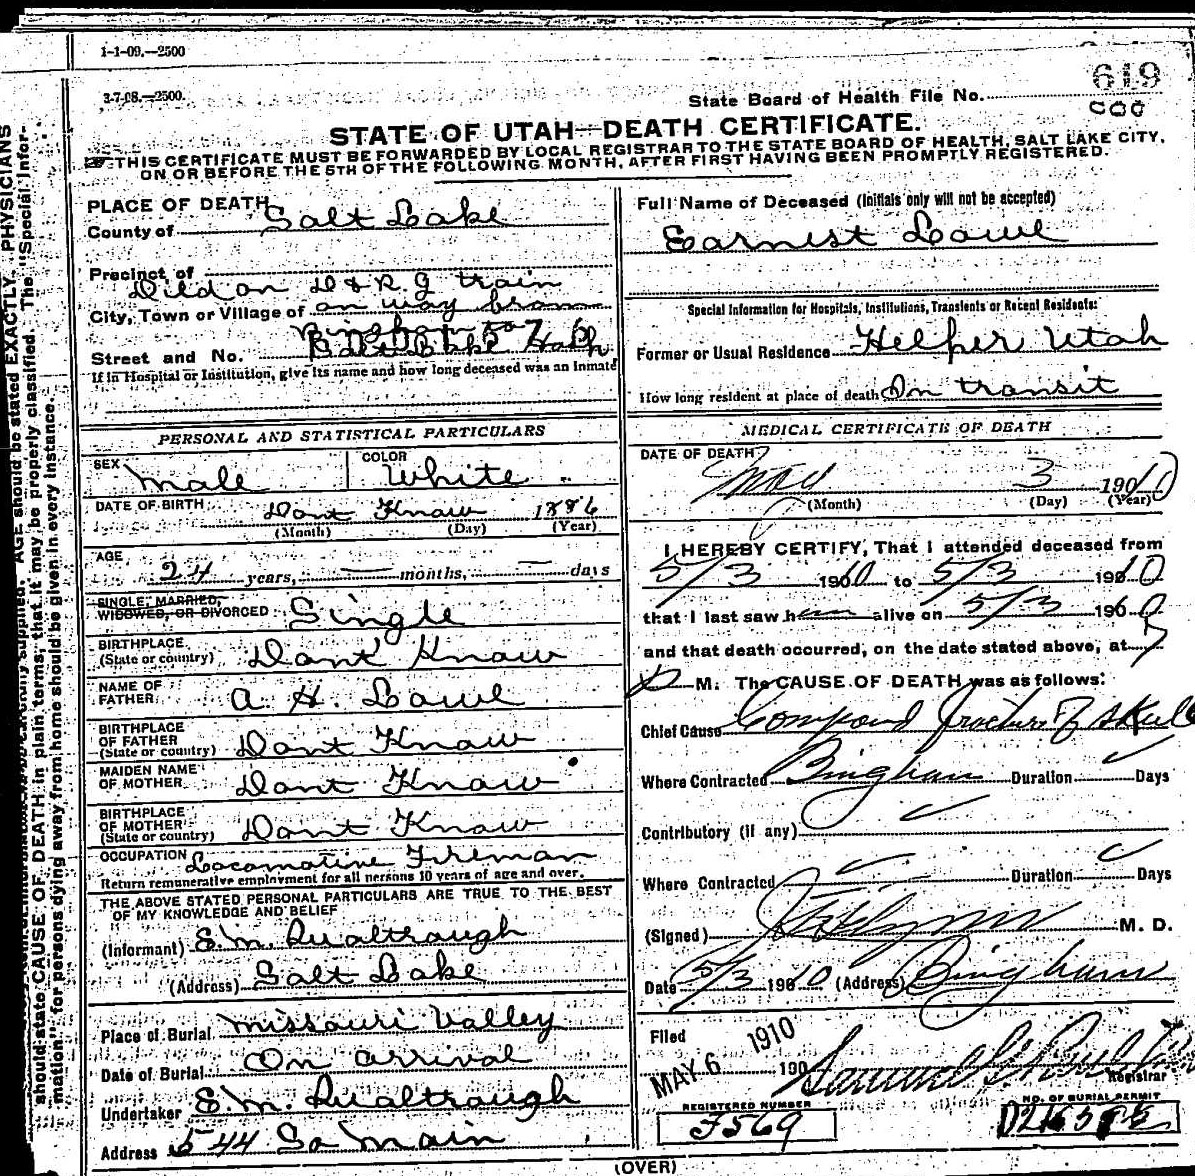 1-1-09.—2500
3-7-08.—2500.
619
State Board of Health File No.
STATE OF UTAH—DEATH CERTIFICATE.
THIS CERTIFICATE MUST BE FORWARDED BY LOCAL REGISTRAR TO THE STATE BOARD OF HEALTH, SALT LAKE CITY,
ON OR BEFORE THE 5TH OF THE FOLLOWING MONTH, AFTER FIRST HAVING BEEN PROMPTLY REGISTERED.
PLACE OF DEATH
County of Salt Lake
Precinct of
Died on D & R. G train
City, Town or Village of on way from
Bingham to
Street and No. Salt Lake Utah
If in Hospital or Institution, give its name and how long deceased was an Inmate
PERSONAL AND STATISTICAL PARTICULARS
SEX Male COLOR White
DATE OF BIRTH Dont Know 1886
(Month) (Day) (Year)
AGE
24 years, — months, — days
SINGLE, MARRIED,
WIDOWED, OR DIVORCED Single
BIRTHPLACE
(State or country) Dont Know
NAME OF
FATHER A. H. Lowe
BIRTHPLACE
OF FATHER
(State or country) Dont Know
MAIDEN NAME
OF MOTHER Dont Know
BIRTHPLACE
OF MOTHER
(State or country) Dont Know
OCCUPATION Locomotive Fireman
Return remunerative employment for all persons 10 years of age and over.
THE ABOVE STATED PERSONAL PARTICULARS ARE TRUE TO THE BEST
OF MY KNOWLEDGE AND BELIEF
(Informant) S. M. Dualtrough
(Address) Salt Lake
Place of Burial Missouri Valley
Date of Burial On arrival
Undertaker S. M. Dualtrough
Address 544 So Main
Full Name of Deceased (Initials only will not be accepted)
Earnest Lowe
Special Information for Hospitals, Institutions, Transients or Recent Residents:
Former or Usual Residence Helper Utah
How long resident at place of death In transit
MEDICAL CERTIFICATE OF DEATH
DATE OF DEATH
May 3 1910
(Month) (Day) (Year)
I HEREBY CERTIFY, That I attended deceased from
5/3 1910 to 5/3 1910
that I last saw him alive on 5/3 1910
and that death occurred, on the date stated above, at 7
P M. The CAUSE OF DEATH was as follows:
Chief Cause Compound fracture of skull
Where Contracted Bingham Duration Days
Contributory (if any)
Where Contracted Duration Days
(Signed) M. D.
Date 5/3 1910 (Address) Bingham
Filed
MAY 6 1910 190
Registrar
REGISTERED NUMBER
NO. OF BURIAL PERMIT
F569
(OVER)
AGE should be stated EXACTLY. PHYSICIANS
should state CAUSE OF DEATH in plain terms, that it may be properly classified. The "Special Infor-
mation" for persons dying away from home should be given in every instance.